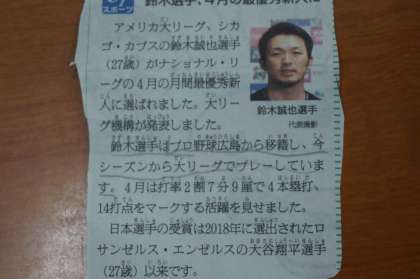 スポーツ
鈴木選手、4月の最優秀新人に
アメリカ大リーグ、シカ
ゴ・カブスの鈴木誠也選手
(27歳)がナショナル・リ
ーグの4月の月間最優秀新
人に選ばれました。大リー
グ機構が発表しました。
鈴木誠也選手
代表撮影
鈴木選手はプロ野球広島から移籍し、今
シーズンから大リーグでプレーしていま
す。4月は打率2割7分9厘で4本塁打、
14打点をマークする活躍を見せました。
日本選手の受賞は2018年に選出されたロ
サンゼルス・エンゼルスの大谷翔平選手
(27歳)以来です。